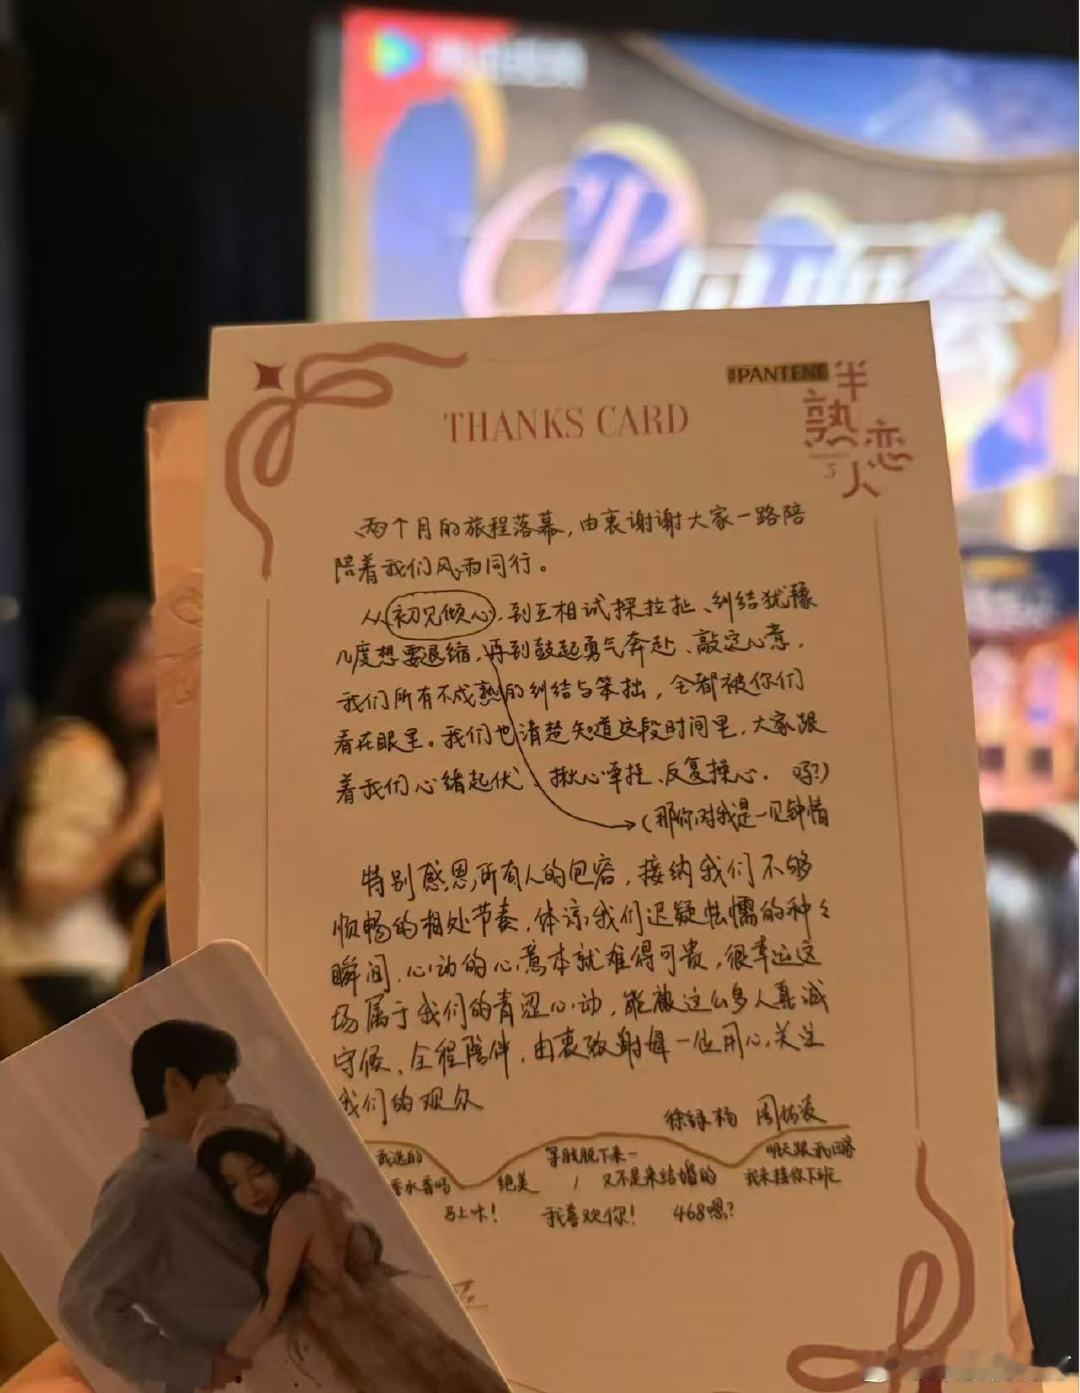 CP
PANTENE
半熟恋人
5
THANKS CARD
两个月的旅程落幕，由衷谢谢大家一路陪
陪着我们风雨同行。
从初见倾心，到互相试探拉扯、纠结犹豫
几度想要退缩，再到鼓起勇气奔赴、敲定心意，
我们所有不成熟的纠结与笨拙，全都被你们
看在眼里。我们也清楚知道这段时间里，大家跟
着我们心绪起伏、揪心牵挂、反复操心。
(那你对我是一见钟情
吗?)
特别感恩所有人的包容，接纳我们不够
顺畅的相处节奏，体谅我们迟疑怯懦的种々
瞬间，心动的心意本就难得可贵，很幸运这
场属于我们的青涩心动，能被这么多人真诚
守候、全程陪伴，由衷致谢每一位用心关注
我们的观众
我选的
香水香吗
绝美
等肢脱下来一
又不是来结婚的
明天跟我回家
我来接你下班
马上咔！
我喜欢你！
468嗯？